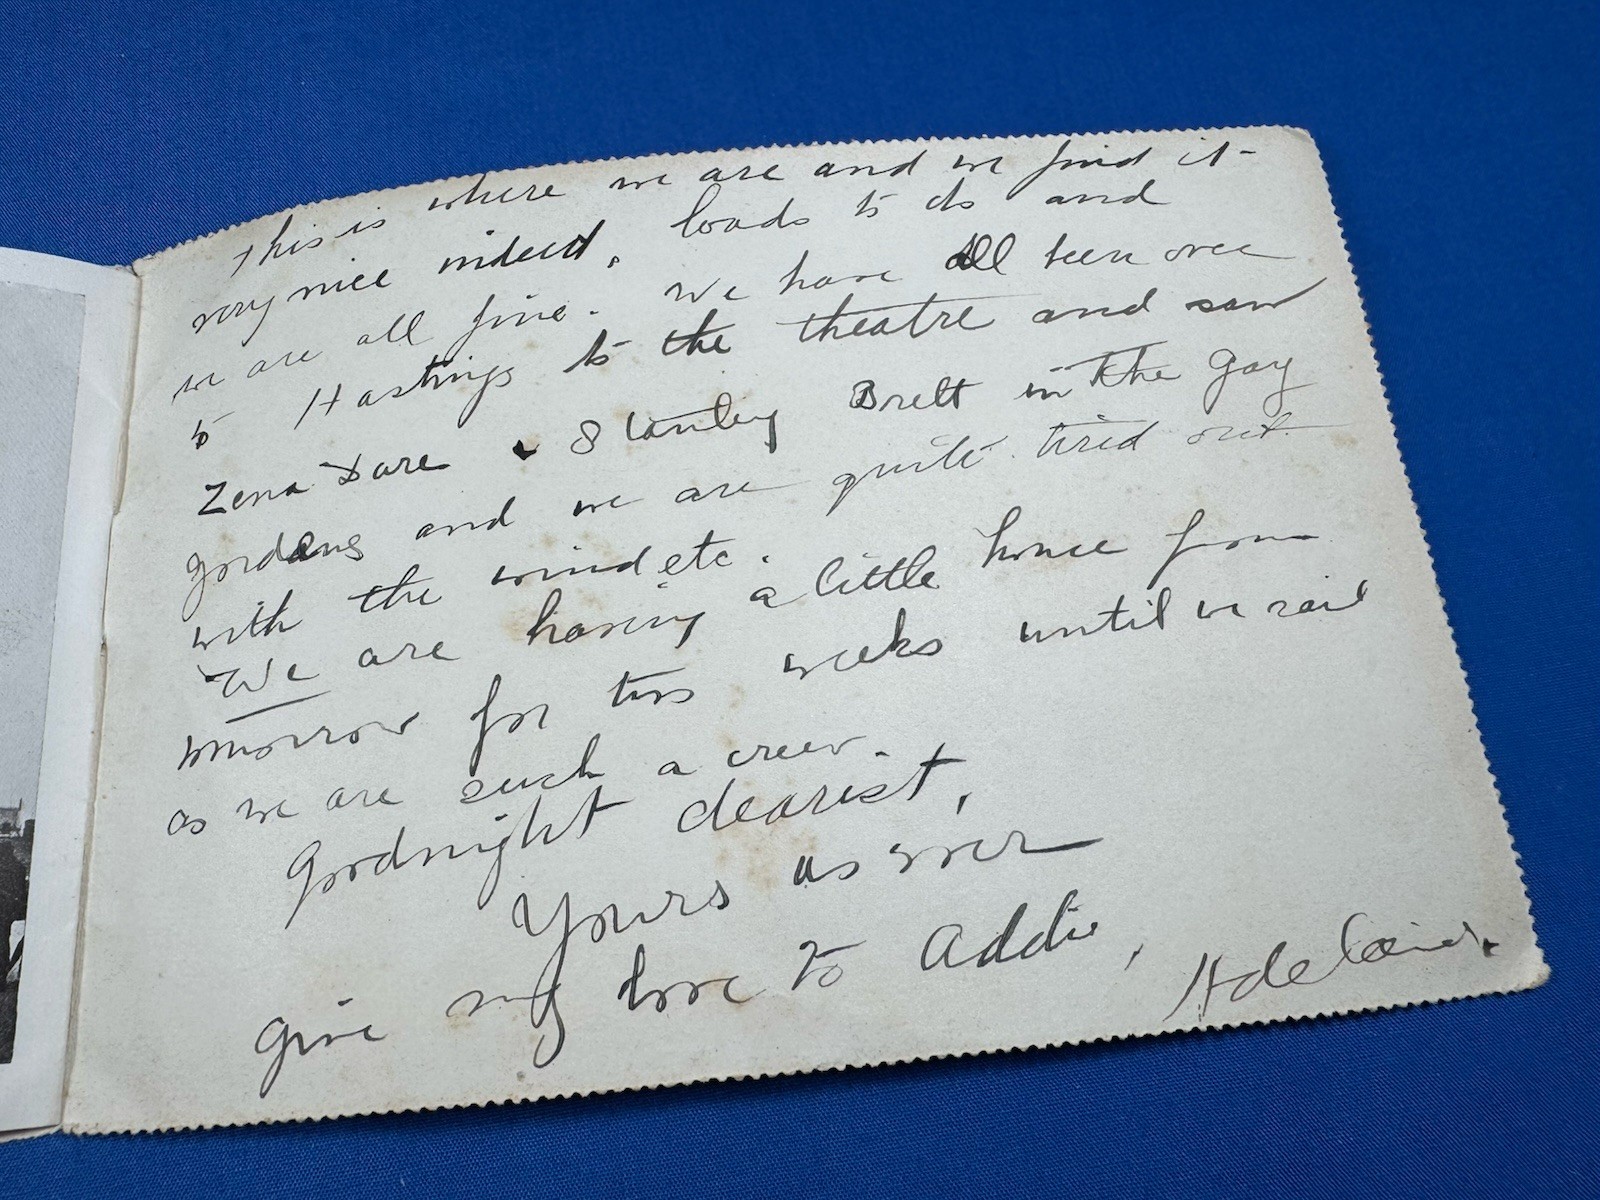 This is where we are and we find it
very nice indeed, loads to do and
we are all fine. We have all been over
to Hastings to the theatre and saw
Zena Dare & Stanley Brett in the Gay
gordons and we are quite tired out
with the wind etc.
We are having a little house from
tomorrow for two weeks until we sail
as we are such a crew.
Goodnight dearest,
Yours as ever
give my love to Addie, Adelaide.